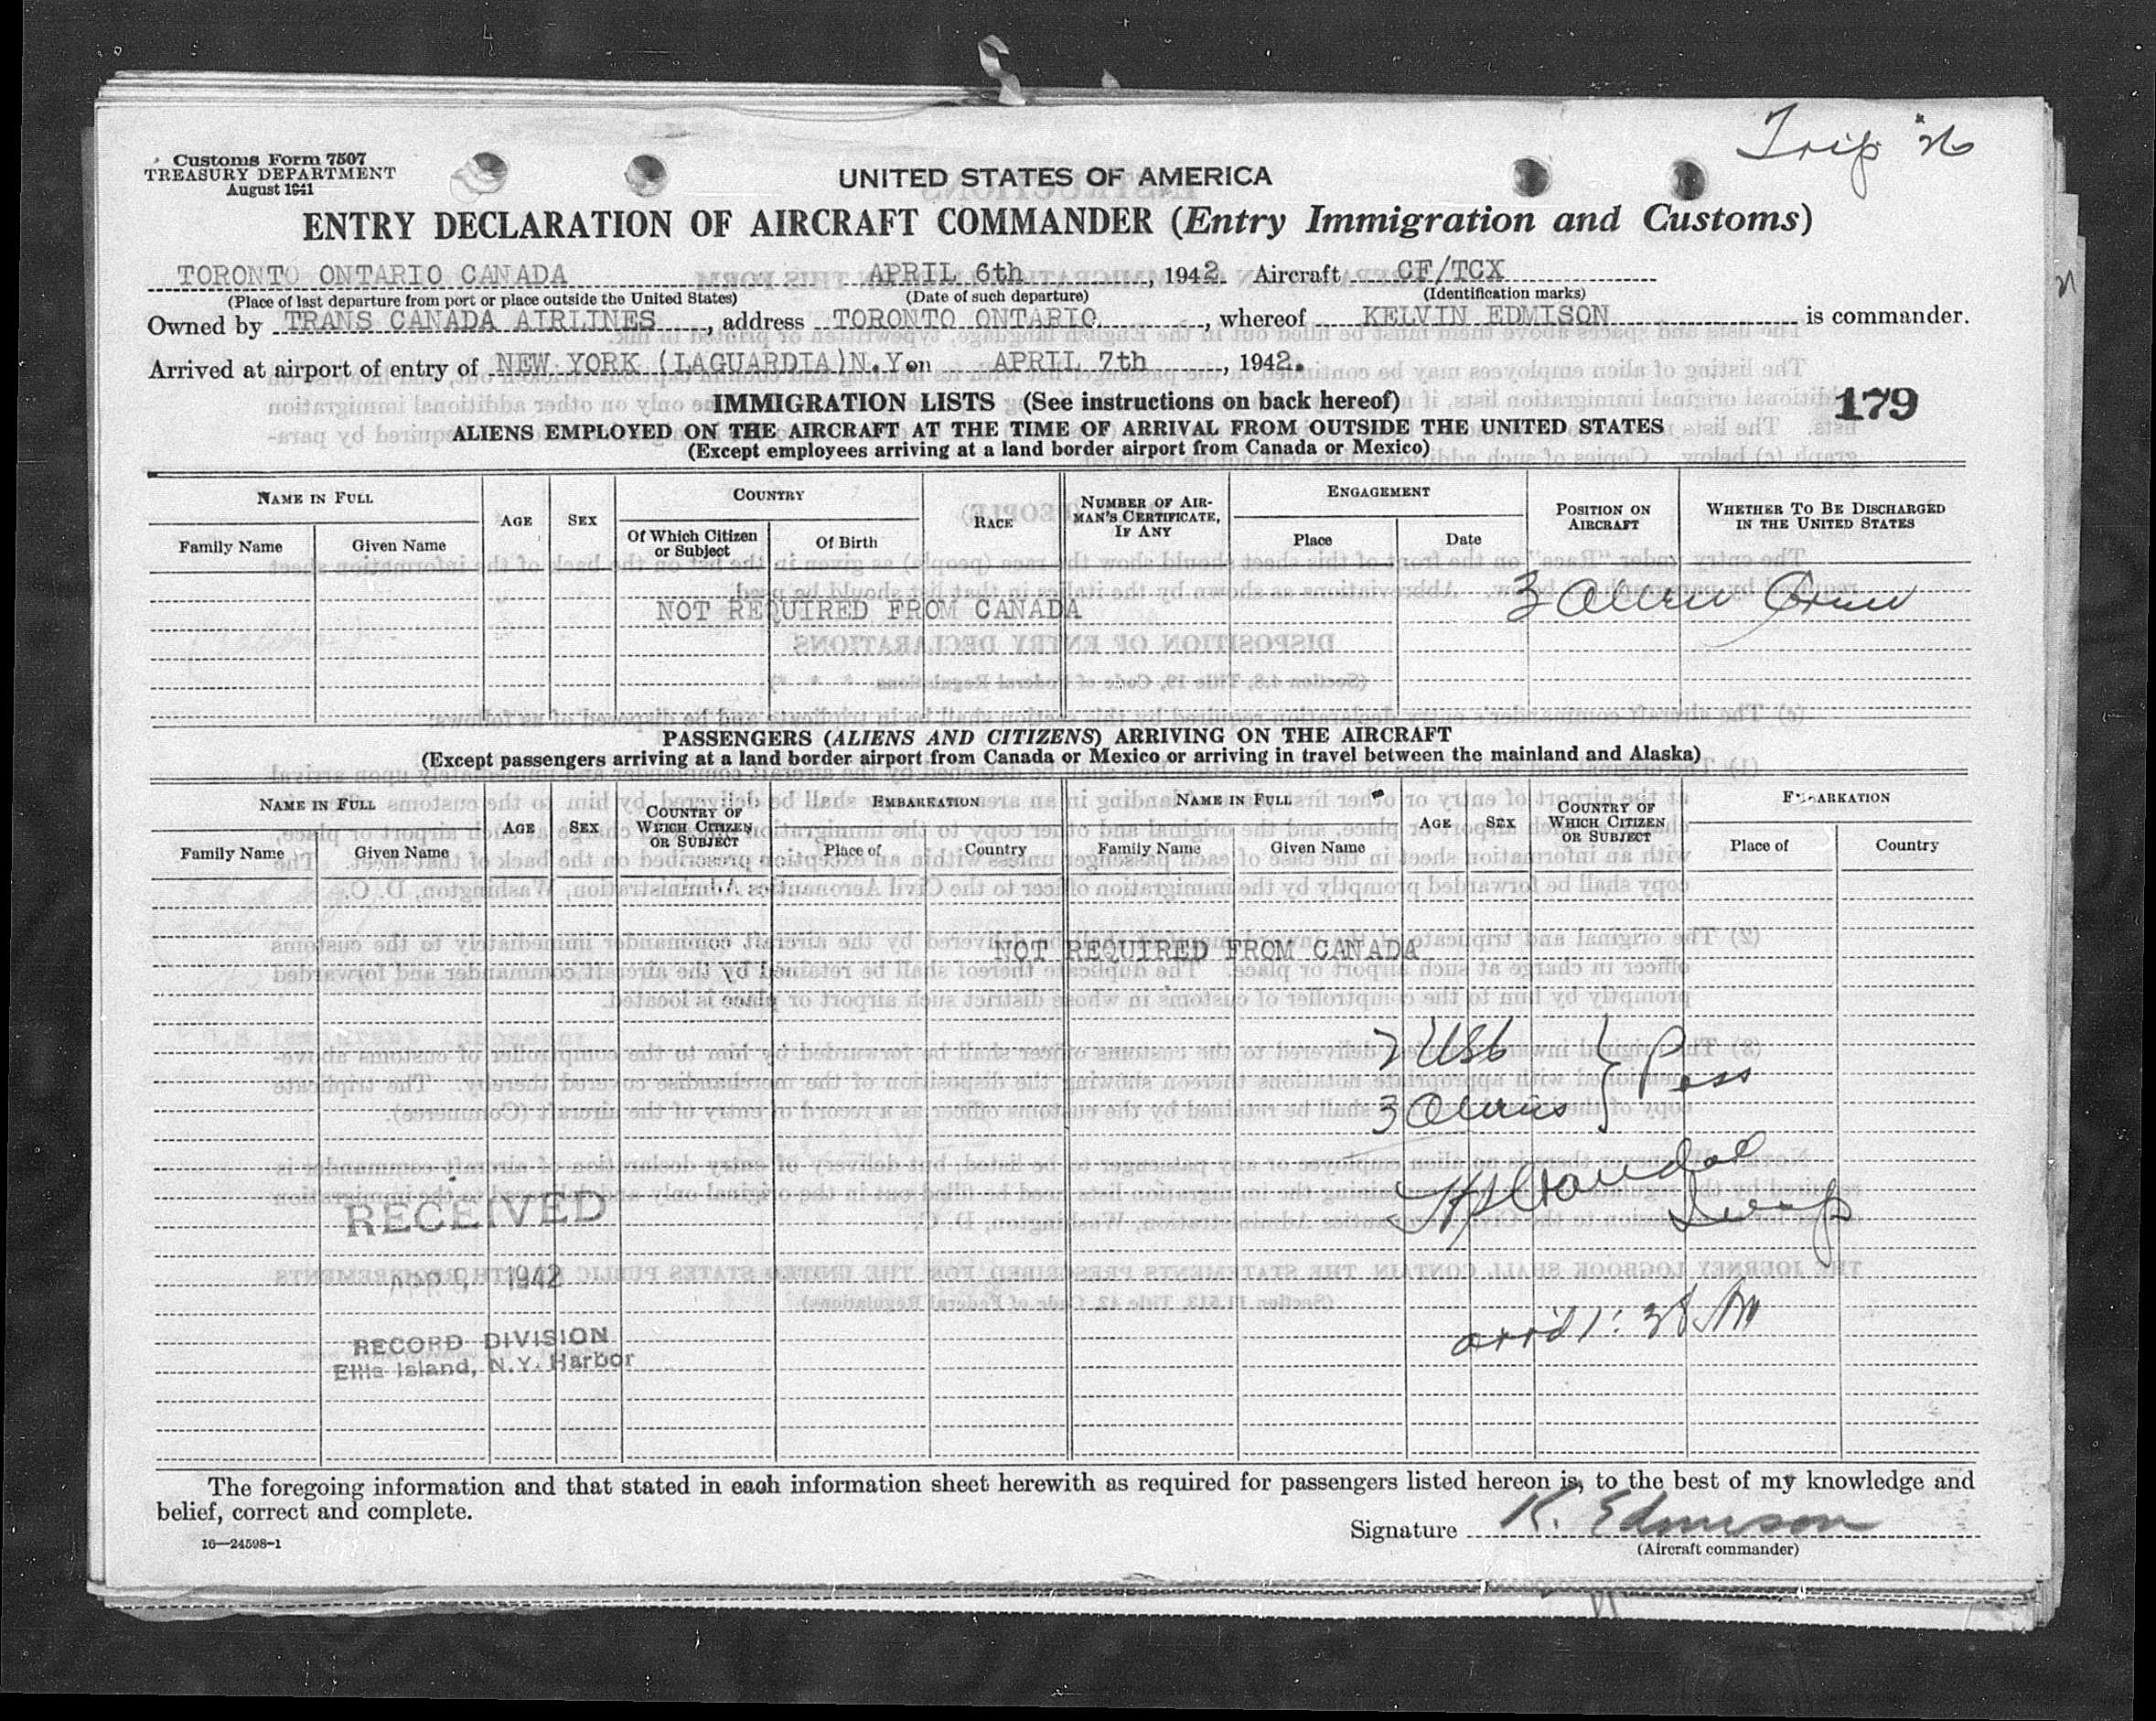 Trip 26
Customs Form 7507
TREASURY DEPARTMENT
August 1941
UNITED STATES OF AMERICA
ENTRY DECLARATION OF AIRCRAFT COMMANDER (Entry Immigration and Customs)
TORONTO ONTARIO CANADA APRIL 6th, 1942 Aircraft CF/TCX
(Place of last departure from port or place outside the United States) (Date of such departure) (Identification marks)
Owned by TRANS CANADA AIRLINES, address TORONTO ONTARIO, whereof KELVIN EDMISON is commander.
Arrived at airport of entry of NEW YORK (LAGUARDIA)N.Y. on APRIL 7th, 1942.
IMMIGRATION LISTS (See instructions on back hereof)
179
ALIENS EMPLOYED ON THE AIRCRAFT AT THE TIME OF ARRIVAL FROM OUTSIDE THE UNITED STATES
(Except employees arriving at a land border airport from Canada or Mexico)
NAME IN FULL AGE SEX COUNTRY RACE NUMBER OF AIRMAN'S CERTIFICATE, IF ANY ENGAGEMENT POSITION ON AIRCRAFT WHETHER TO BE DISCHARGED IN THE UNITED STATES
Family Name Given Name Of Which Citizen or Subject Of Birth Place Date
NOT REQUIRED FROM CANADA 3 Alien Crew
PASSENGERS (ALIENS AND CITIZENS) ARRIVING ON THE AIRCRAFT
(Except passengers arriving at a land border airport from Canada or Mexico or arriving in travel between the mainland and Alaska)
NAME IN FULL AGE SEX COUNTRY OF WHICH CITIZEN OR SUBJECT EMBARKATION NAME IN FULL AGE SEX COUNTRY OF WHICH CITIZEN OR SUBJECT EMBARKATION
Family Name Given Name Place of Country Family Name Given Name Place of Country
NOT REQUIRED FROM CANADA
7 USC } Pass
3 Aliens
Insp
RECEIVED
1942
arr'd 1:38 AM
RECORD DIVISION
Ellis Island, N.Y. Harbor
The foregoing information and that stated in each information sheet herewith as required for passengers listed hereon is, to the best of my knowledge and
belief, correct and complete.
Signature K. Edmison
(Aircraft commander)
16—24598-1